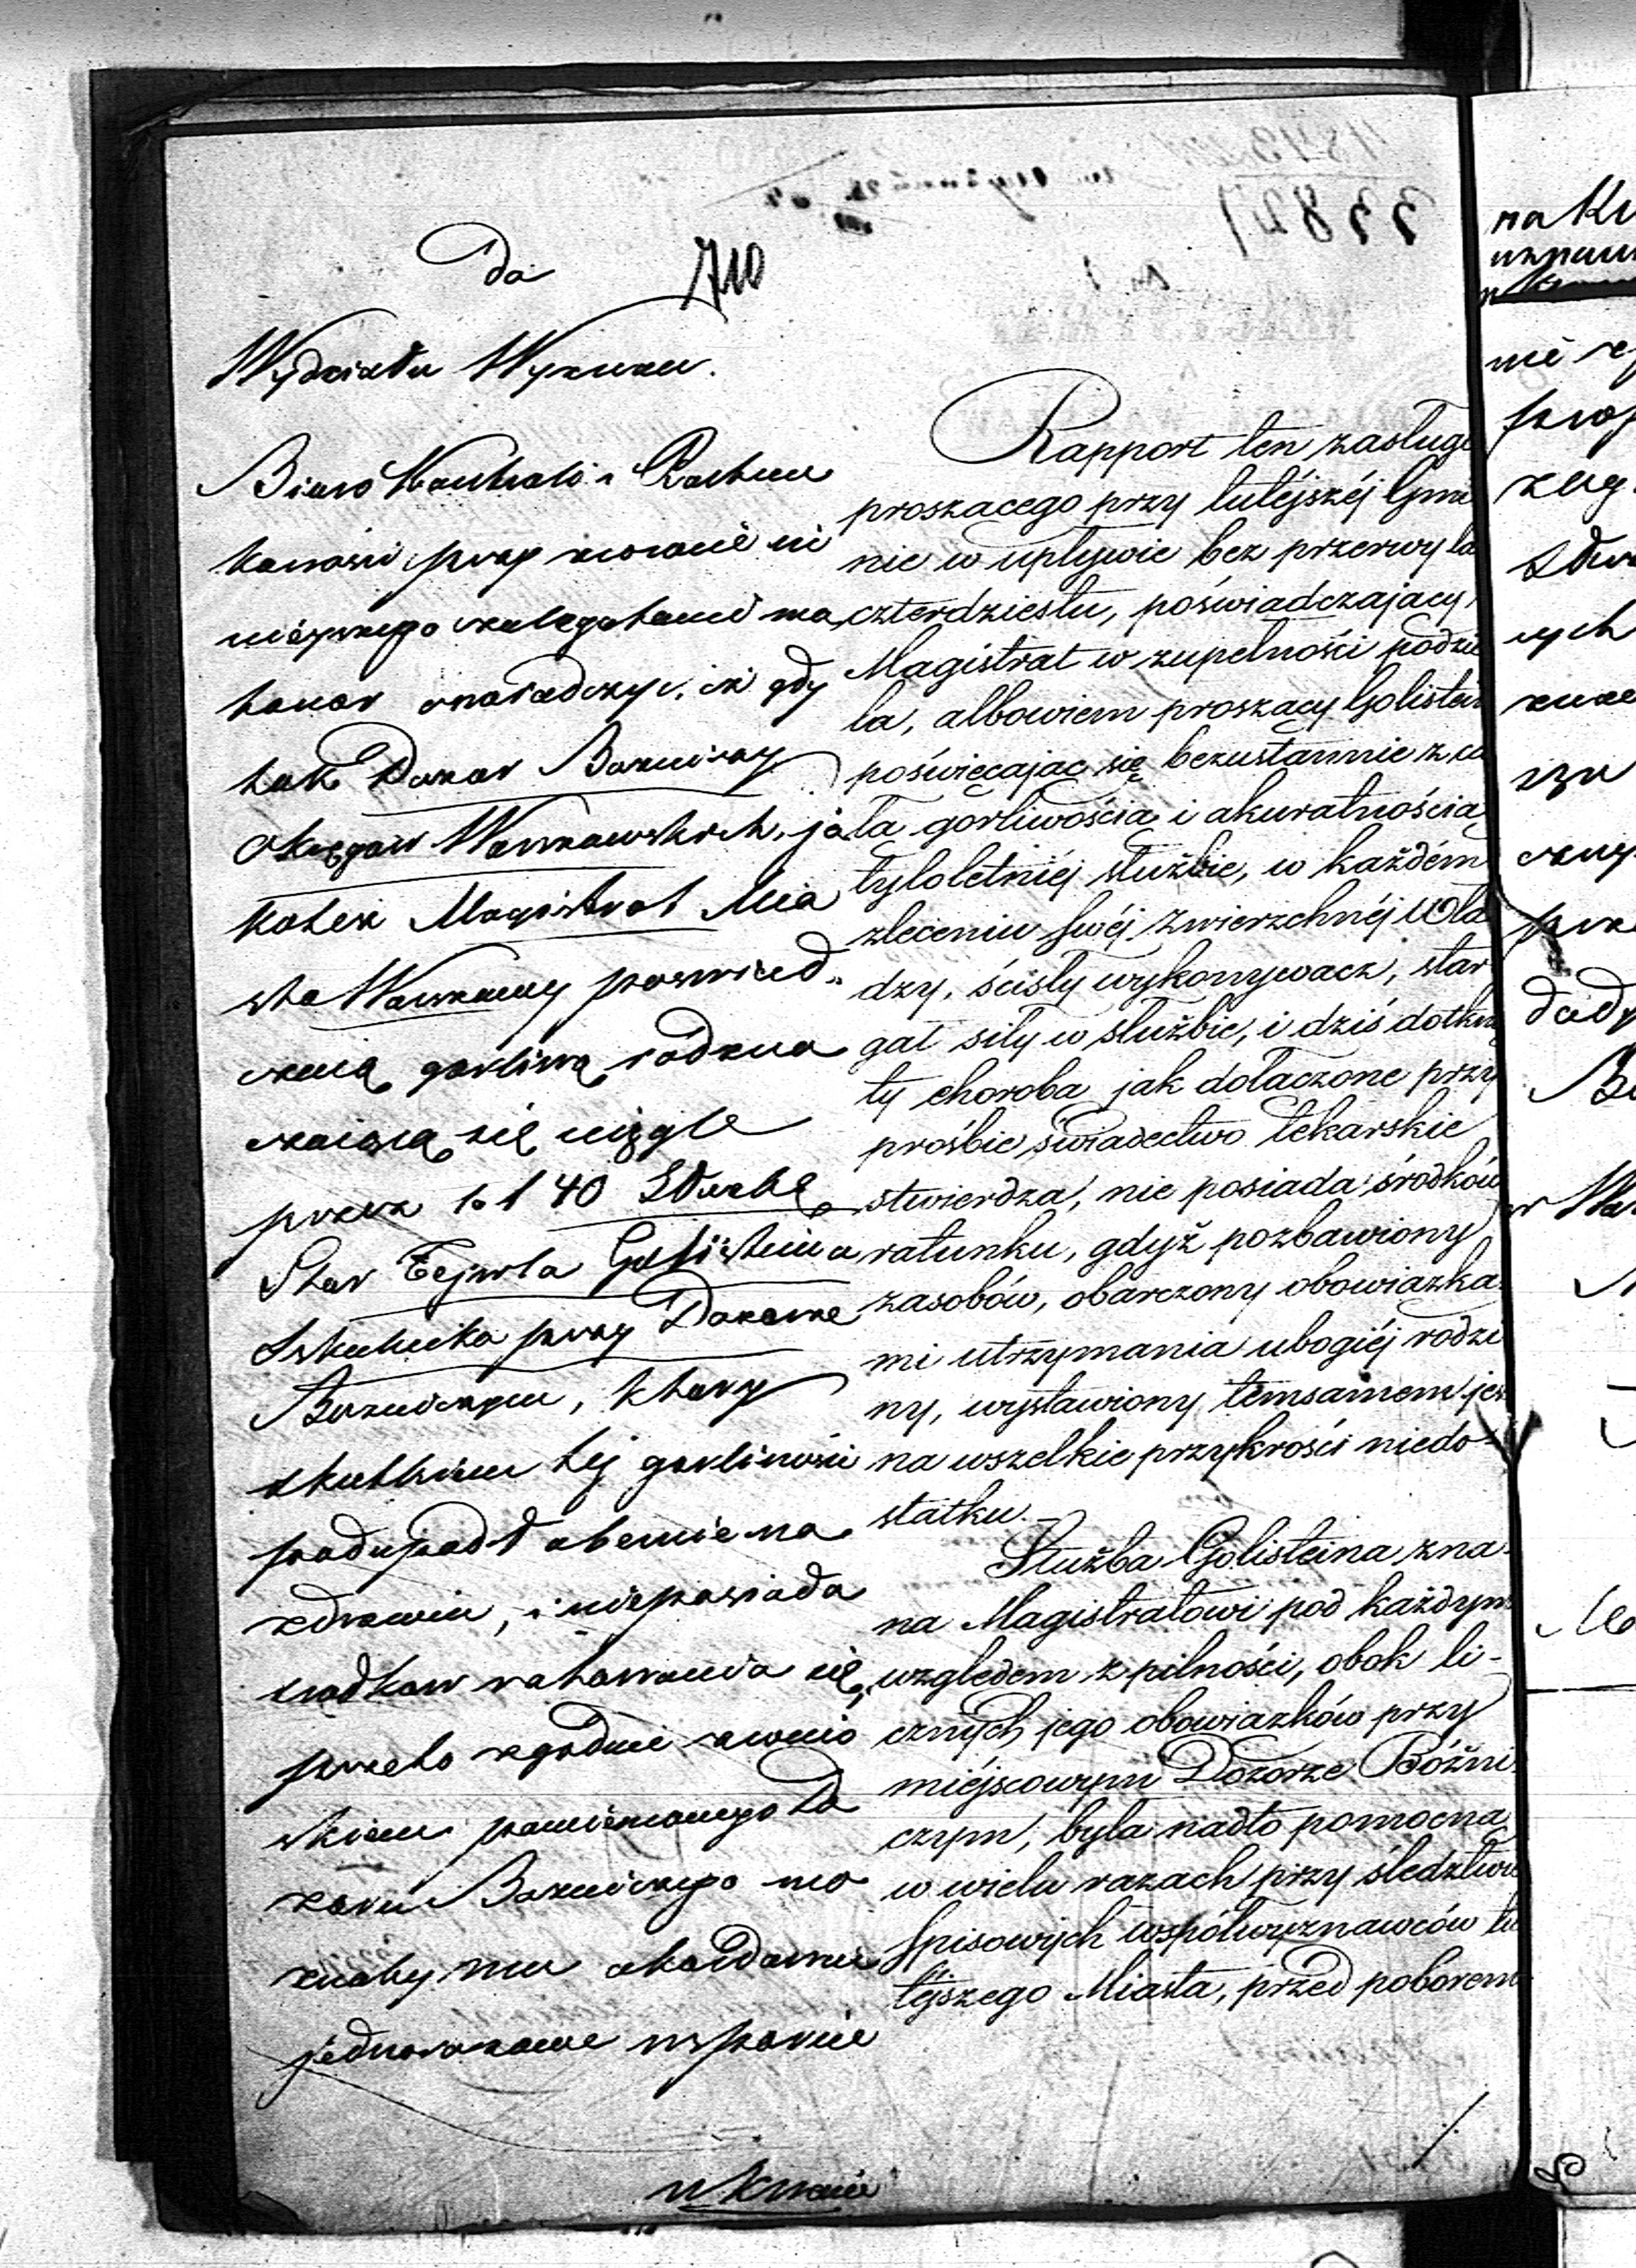 Do
710
Wydziału Wyznań.
Biuro Kontroli i Rachun
kowości przy zwrocie ni
niejszego z allegatami ma
honor oświadczyć, iż gdy
tak Dozor Bozniczy
Okręgów Warszawskich, ja
kotez Magistrat Mia
sta Warszawy poswiad-
czają gorliwą odzna
czaiącą się ciągle
przez lat 40 Służbę
Star Tejwla Golisteina
Szkolnika przy Dozorze
Bozniczym, ktory
skutkiem tej gorliwości
podupadł obecnie na
zdrowiu, i nieposiada
srodkow ratowania się,
przeto zgodnie z wnio
skiem pomienionego Do
zoru Bozniczego mo
znaby mu
jednorazowe wsparcie
w kwocie
Rapport ten zasługi
proszacego przy tutéjszéj Gmi
nie w upływie bez przerwy la
czterdziestu, poświadczajacy,
Magistrat w zupełności podzie
la, albowiem proszacy Golistein
poświęcajac się bezustannie z ca
ła gorliwościa i akuratnościa
tyloletniéj służbie, w každém
zleceniu swéj Zwierzchnéj Wła
dzy, ścisły wykonywacz, star
gał siły w służbie, i dziś dotknię
ty choroba jak dołaczone przy
prośbie świadectwo lekarskie
stwierdza, nie posiada środków
ratunku, gdyž pozbawiony
zasobów, obarczony obowiazka-
mi utrzymania ubogiéj rodzi
ny, wystawiony temsamem jes
na wszelkie przykrości niedo-
statku.
Służba Golisteina zna-
na Magistratowi pod każdym
względem z pilności, obok li-
cznych jego obowiazków przy
miéjscowym Dozorze Bóżni-
czym, była nadto pomocna
w wielu razach przy śledztwie
spisowych współwyznawców tu
tejszego Miasta, przed poborem